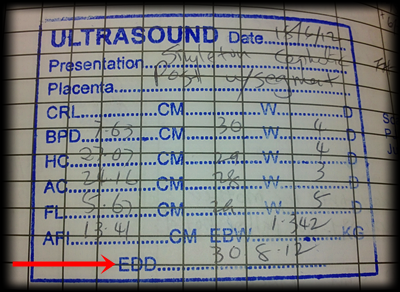 ULTRASOUND Date 15/6/12
Presentation Singleton Cephalic
Placenta Post u/segment
CRL CM W D
BPD 7.63 CM 30 W 4 D
HC 27.07 CM 29 W 4 D
AC 24.16 CM 28 W 3 D
FL 5.67 CM 29 W 5 D
AFI 13.41 CM EBW 1.342 KG
EDD 30 8.12